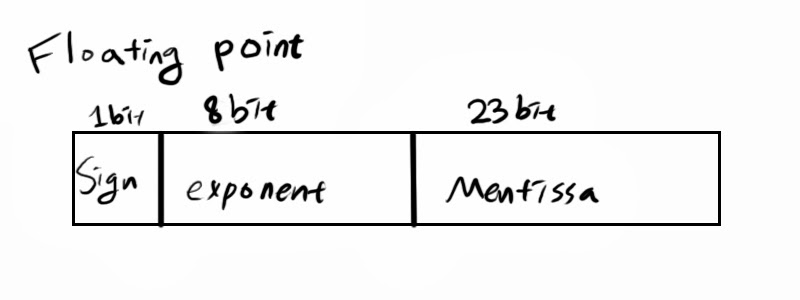 Floating point
1bit 8bit 23bit
Sign exponent Mentissa